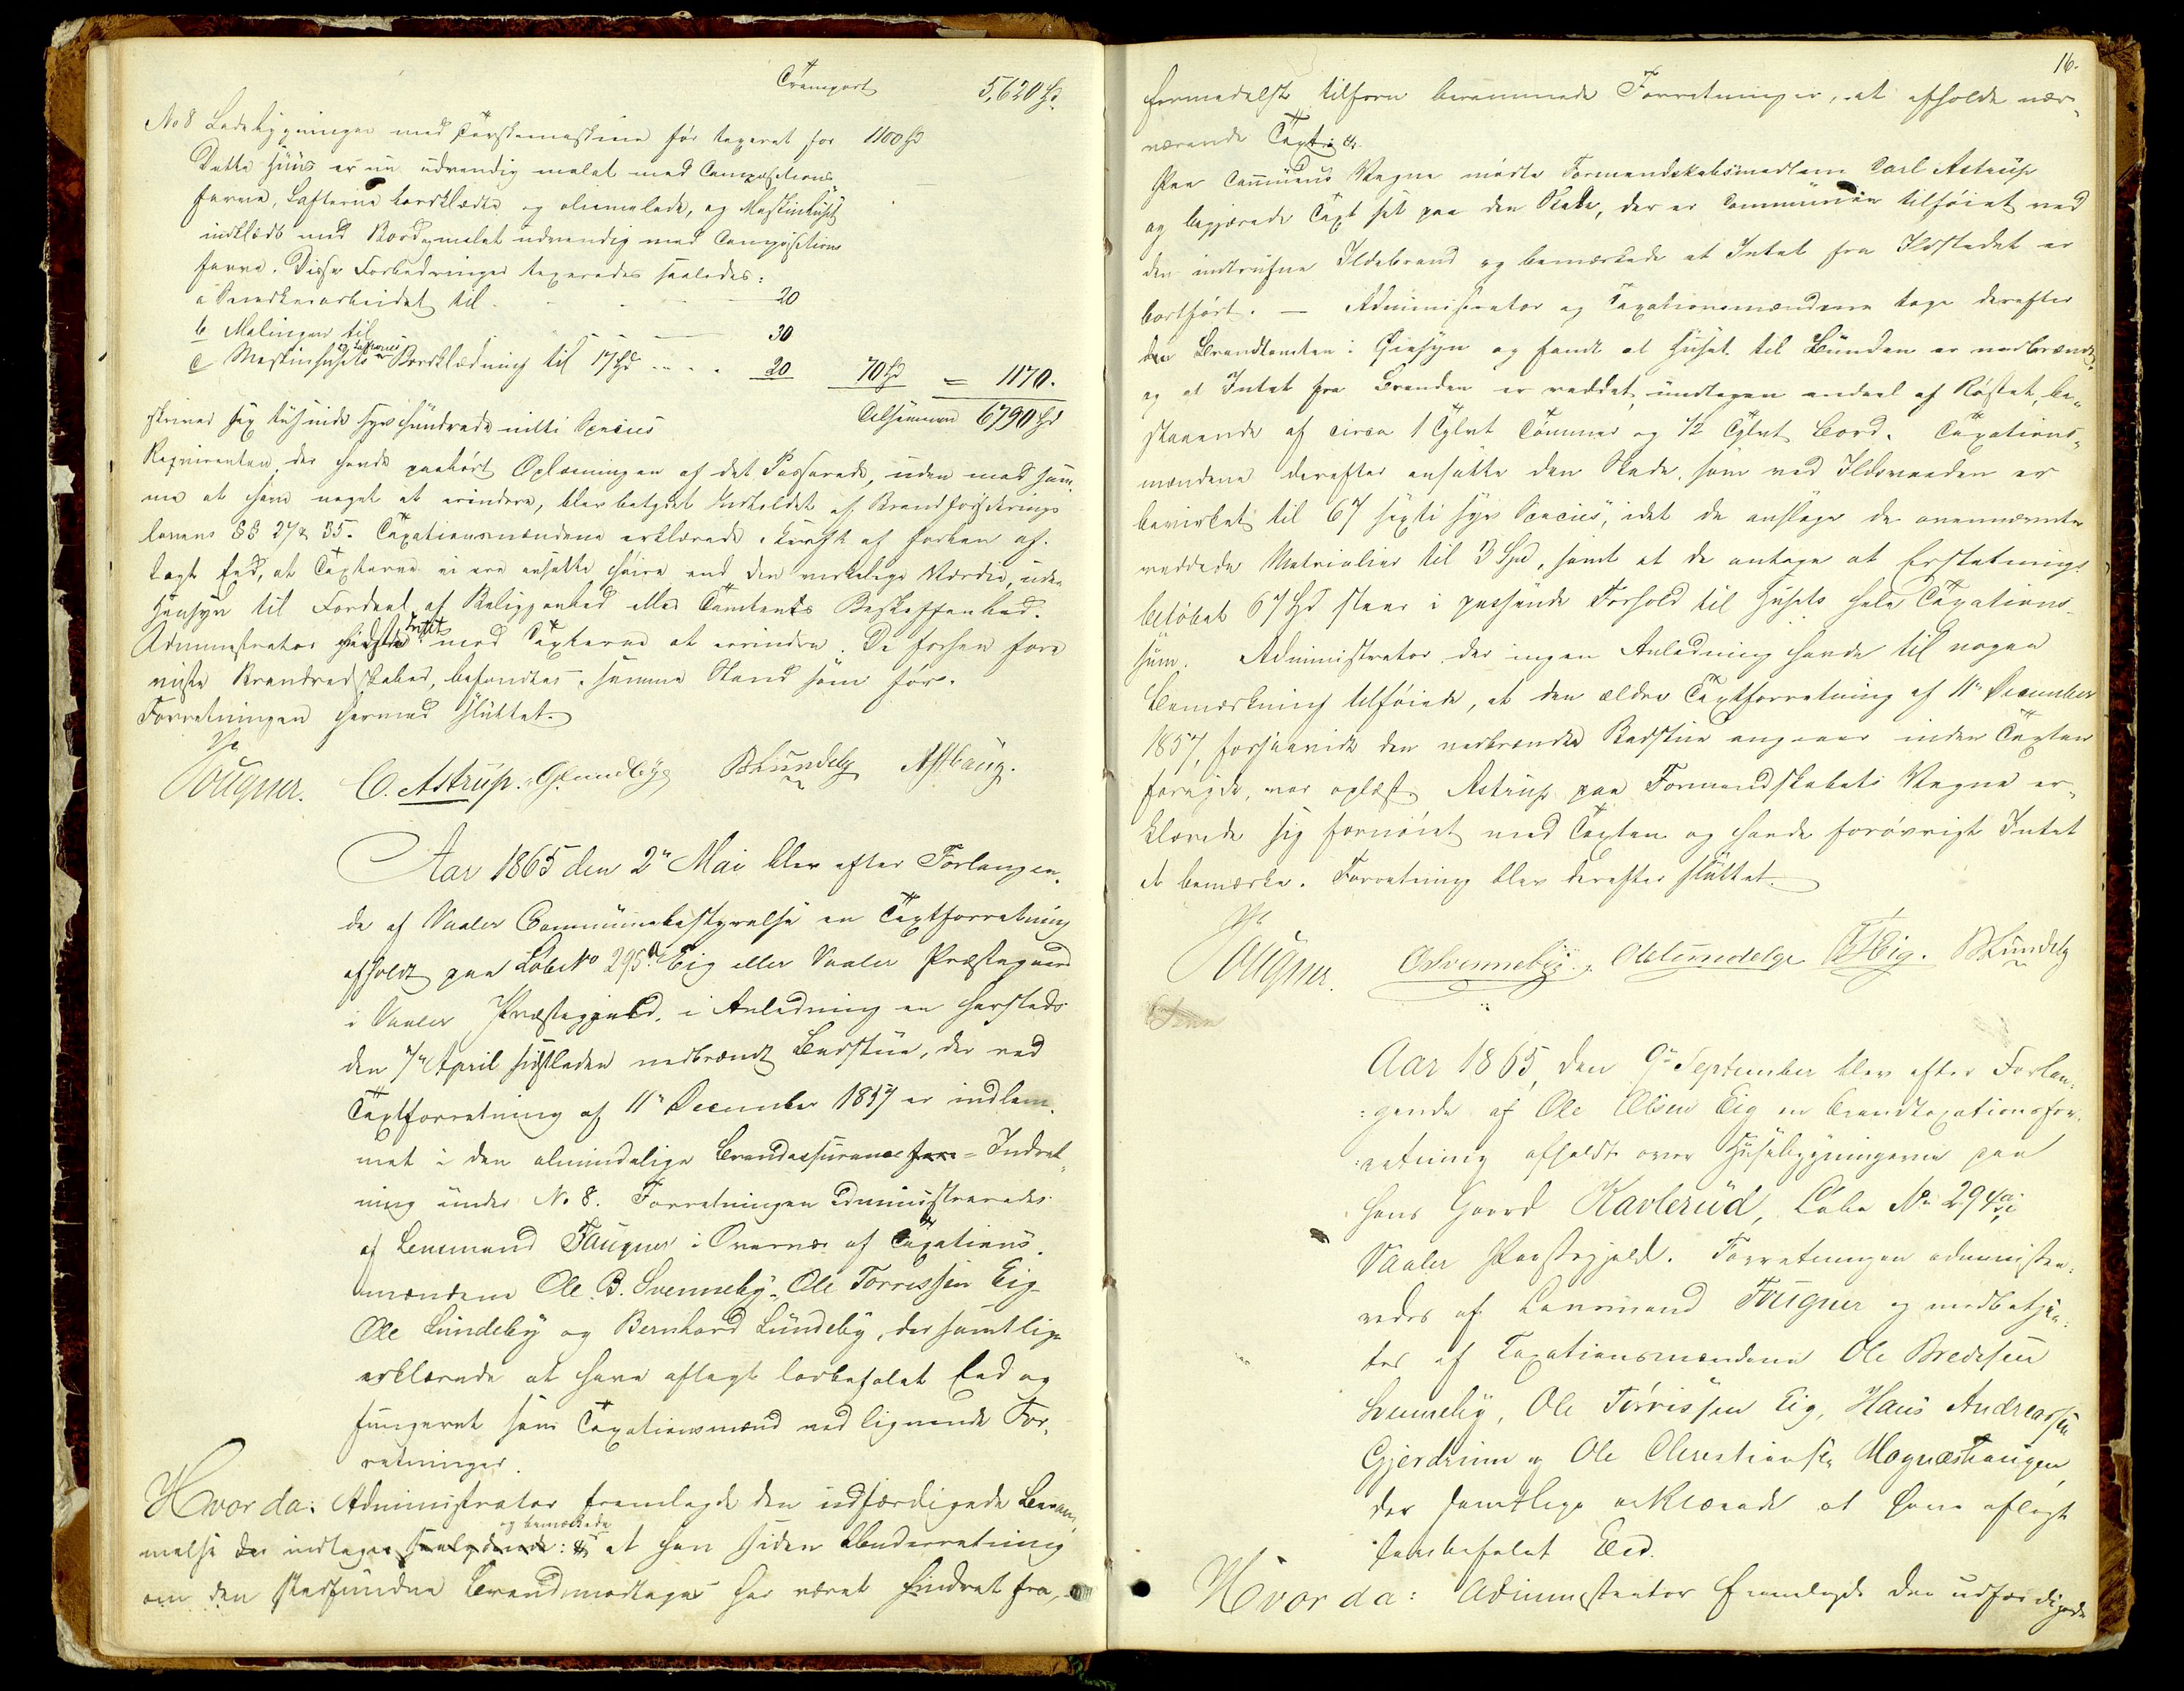 Transport 5,620 Spd.
No 8 Ladebygningen med Tærskemaskine før taxeret for 1100 Spd
Dette Huus er nu udvendig malet med Compositions
farve, Lofterne bordklædte og oliemalede, og Maskinhuset
indklædt med Bord, malet udvendig med Compositions
farve. Disse Forbedringer taxeredes saaledes:
a Snedkerarbeidet til - - - 20
b Malingen til - - - 30
c Maskinhusets og Lofternes Bordklædning til 17 Spd .... 20 70 Spd = 1170.
skriver sex tusinde syv hundrede nitti Species Tilsammen 6790 Spd
Reqvirenten, der havde paahørt Oplæsningen af det Passerede, uden mod sam,
me at have noget at erindre, blev betydet Indholdet af Brandforsikrings
lovens §§ 27 & 35. Taxationsmændene erklærede i Kraft af forhen af.
lagt Eed, at Taxterne ei ere ansatte høiere end den virkelige Værdie, uden
Hensyn til Fordeel af Beliggenhed eller Tomtens Beskaffenhed.
Administrator havde Intet mod Taxterne at erindre. De forhen fore
viste Brandredskaber, befandtes i samme Stand som før.
Forretningen hermed sluttet.
Fougner. C. Astrup. O Lundeby BLundeby AHaug.
Aar 1865 den 2n Mai blev efter Forlangen,
de af Vaaler Communebestyrelse en Taxtforretning
afholdt paa Løbe No 295a Eig eller Vaaler Præstegaard
i Vaaler Præstegjeld, i Anledning en hersteds
den 7n April sidstleden nedbrændt Badstue, der ved
Taxtforretning af 11n December 1857 er indlem,
met i den almindelige Brandassurance for = Indret,
ning under No 8. Forretningen administreredes
af Lensmand Fougner i Overvær af Taxations,
mændene Ole B. Svenneby, Ole Torrissen Eig
Ole Lundeby og Bernhard Lundeby, der samtlige
erklærede at have aflagt lovbefalet Eed og
fungeret som Taxationsmænd ved lignende For,
retninger.
Hvor da: Administrator fremlagde den udfærdigede Beram,
melse der indtages saalydende: og bemærkede at han siden Underretning
om den stedfundne Brand modtages har været hindret fra,
16.
formedelst tilforn berammede Forretninger, at afholde nær,
værende Taxt.
Paa Communens Vegne mødte Formandskabsmedlem Carl Astrup
og begjærede Taxt sat paa den Skade, der er Communen tilføiet ved
den indtrufne Ildebrand og bemærkede at Intet fra Ildstedet er
bortført. — Administrator og Taxationsmændene toge derefter
den Brandtomten i Øiesyn og fandt at Huset til Bunden er nedbrændt,
og at Intet fra Branden er reddet, undtagen endeel af Røstet, be,
staaende af circa 1 Tylvt Tømmer og 1/2 Tylvt Bord. Taxations,
mændene derefter ansatte den Skade, som ved Ildsvaaden er
bevirket til 67 sexti syv Species, idet de anslage de ovennævnte
reddede Matrialier til 3 Spd, samt at de antage at Erstatnings
beløbet 67 Spd staar i passende Forhold til Husets hele Taxations,
sum. Administrator, der ingen Anledning havde til nogen
Bemærkning tilføiede, at den ældre Taxtforretning af 11n December
1857, forsaavidt den nedbrændte Badstue angaaer inden Taxten
foregik, var oplæst. Astrup paa Formandskabets Vegne er,
klærede sig fornøiet med Taxten og havde forøvrigt Intet
at bemærke. Forretning blev derefter sluttet.
Fougner. OBSvenneby. OLundeby OTEig. BLundeby
Aar 1865, den 9n September blev efter Forlan,
:gende af Ole Olsen Eig en Brandtaxationsfor,
:retning afholdt over Husebygningerne paa
hans Gaard Kavlerud, Løbe No 294a i
Vaaler Præstegjeld. Forretningen administre:
redes af Lensmand Fougner og medbetjen:
tes af Taxationsmændene Ole Bredesen
Svenneby, Ole Torrissen Eig, Hans Andreassen
Gjerdrum og Ole Christiansen Magnæshaugen,
der samtlige erklærede at have aflagt
lovbefalet Eed.
Hvor da: Administrator fremlagde den udfærdigede